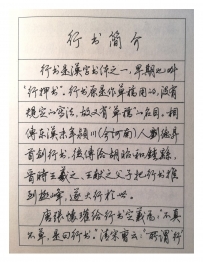 行书简介
行书是汉字书体之一，早期也叫
“行押书”。行书原是作草稿用的，没有
规定的写法，故又有“草稿”的名目。相
传东汉末年颍川（今河南）人刘德昇
首创行书，后传给胡昭和钟繇，
晋时王羲之、王献之父子把行书推
到极峰，遂大行於世。
唐张懷瓘给行书定义为，“不真
不草，是曰行书。”清宋曹云，“所谓‘行’